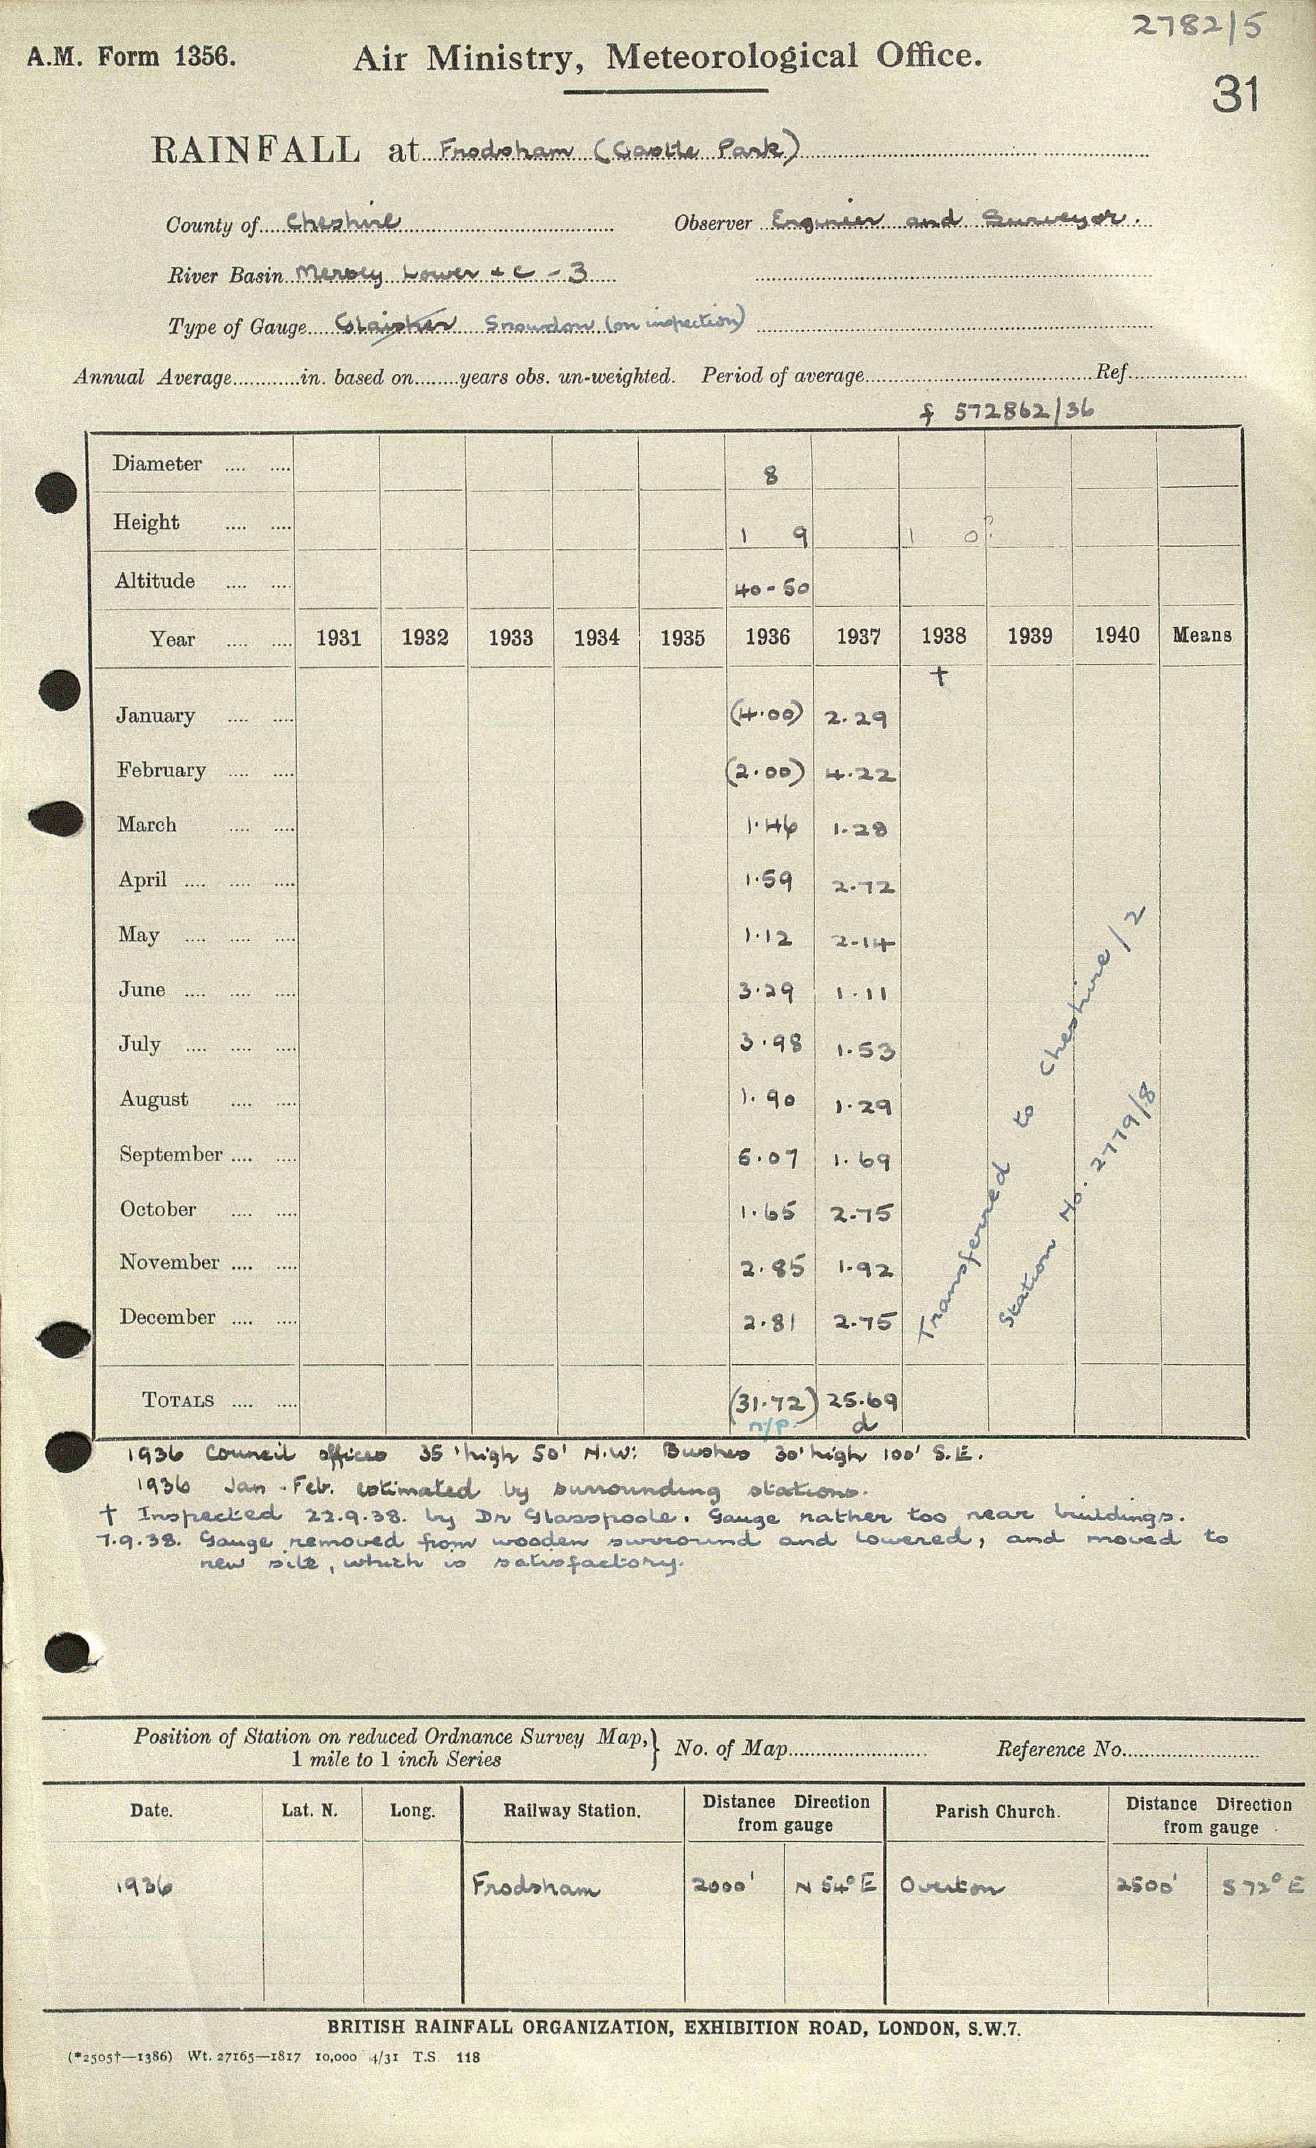 2782/5
A.M. Form 1356. Air Ministry, Meteorological Office.
31
RAINFALL at Frodsham (Castle Park)
County of Cheshire Observer Engineer and Surveyor.
River Basin Mersey Lower + C - 3
Type of Gauge Glaisher Snowdon (on inspection)
Annual Average............in. based on........years obs. un-weighted. Period of average............Ref............
f 572862/36
Diameter .... .... 8
Height .... .... 1 9 1 0?
Altitude .... .... 40-50
Year .... .... 1931 1932 1933 1934 1935 1936 1937 1938 1939 1940 Means
†
January .... .... (4.00) 2.29
February .... .... (2.00) 4.22
March .... .... 1.46 1.28
April .... .... .... 1.59 2.72
May .... .... .... 1.12 2.14
June .... .... .... 3.29 1.11
July .... .... .... 3.98 1.53
August .... .... 1.90 1.29
September .... .... 5.07 1.69
October .... .... 1.65 2.75
November .... .... 2.85 1.92
December .... .... 2.81 2.75
Transferred to Cheshire/2
Station No. 2779/8
TOTALS .... .... (31.72) 25.69
n/p. d
1936 Council offices 35' high 50' N.W: Bushes 30' high 100' S.E.
1936 Jan - Feb. estimated by surrounding stations.
† Inspected 22.9.38. by Dr Glasspoole. Gauge rather too near buildings.
7.9.38. Gauge removed from wooden surround and lowered, and moved to
new site, which is satisfactory.
Position of Station on reduced Ordnance Survey Map,
1 mile to 1 inch Series } No. of Map............ Reference No............
Date. Lat. N. Long. Railway Station. Distance Direction from gauge Parish Church. Distance Direction from gauge
1936 Frodsham 2000' N 54° E Overton 2500' S 72° E
BRITISH RAINFALL ORGANIZATION, EXHIBITION ROAD, LONDON, S.W.7.
(*2505†—1386) Wt. 27165—1817 10,000 4/31 T.S 118